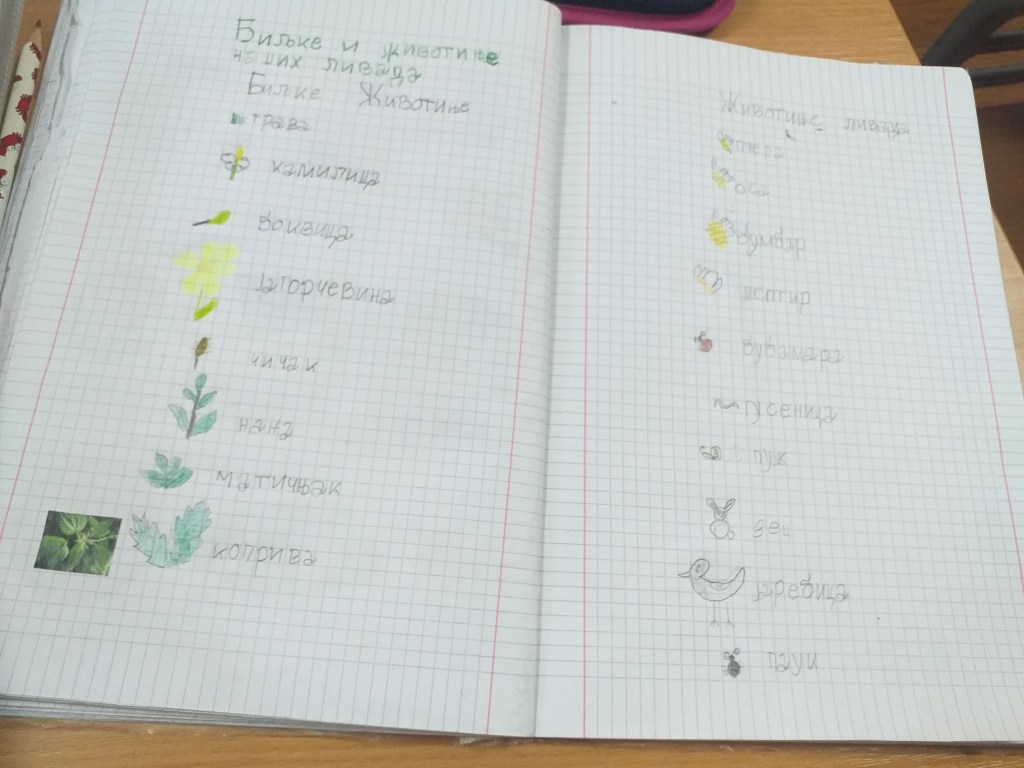 Биљке и животиње
наших ливада
Биљке Животиње
трава
камилица
боквица
јагорчевина
чичак
нана
матичњак
коприва
Животиње ливада
пчела
оса
бумбар
лептир
бубамара
гусеница
пуж
зец
јаребица
паук